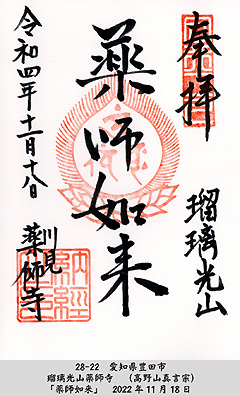 奉拝
瑠璃光山
薬師如来
令和四年十一月十八日
川見
薬師寺
納経
28-22 愛知県豊田市
瑠璃光山薬師寺 （高野山真言宗）
「薬師如来」 2022年11月18日